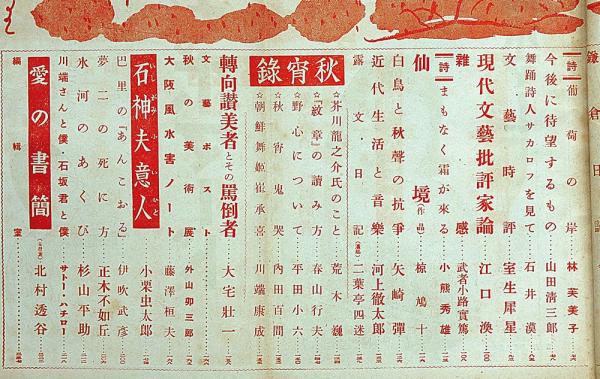 鎌倉日記
[詩] 葡萄の岸 林芙美子
今後に待望するもの 山田清三郎
舞踊詩人サカロフを見て 石井漠
文藝時評 室生犀星
現代文藝批評家論 江口渙
雜感 武者小路實篤
[詩] まもなく霜が來る 小熊秀雄
仙境(作品) 椋鳩十
白鳥と秋聲の抗爭 矢崎彈
近代生活と音樂 河上徹太郎
露文日記(遺稿) 二葉亭四迷
秋宵錄
☆芥川龍之介氏のこと 荒木巍
☆「紋章」の讀み方 春山行夫
☆野心について 平田小六
☆秋宵鬼哭 內田百間
☆朝鮮舞姬崔承喜 川端康成
轉向讚美者とその罵倒者 大宅壯一
文藝ポスト
秋の美術展 外山卯三郎
大阪風水害ノート 藤澤桓夫
石神夫意人 小栗虫太郎
巴里の『あんこおる』 伊吹武彦
夢二の死に方 正木不如丘
氷河のあくび 杉山平助
川端さんと僕・石坂君と僕 サトー・ハチロー
愛の書簡 北村透谷
編輯室